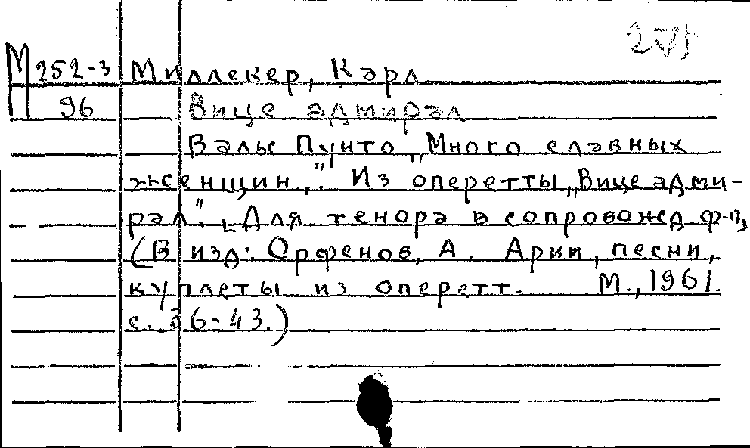 М 252-3 Миллекер, Карл
96 Вице адмирал
Вальс Пунто „Много славных
женщин„." Из оперетты „Вице адми-
рал". Для тенора в сопровожд ф-п,
(В изд: Орфенов, А. Арии, песни,
куплеты из оперетт. М., 1961.
с. 36-43.)